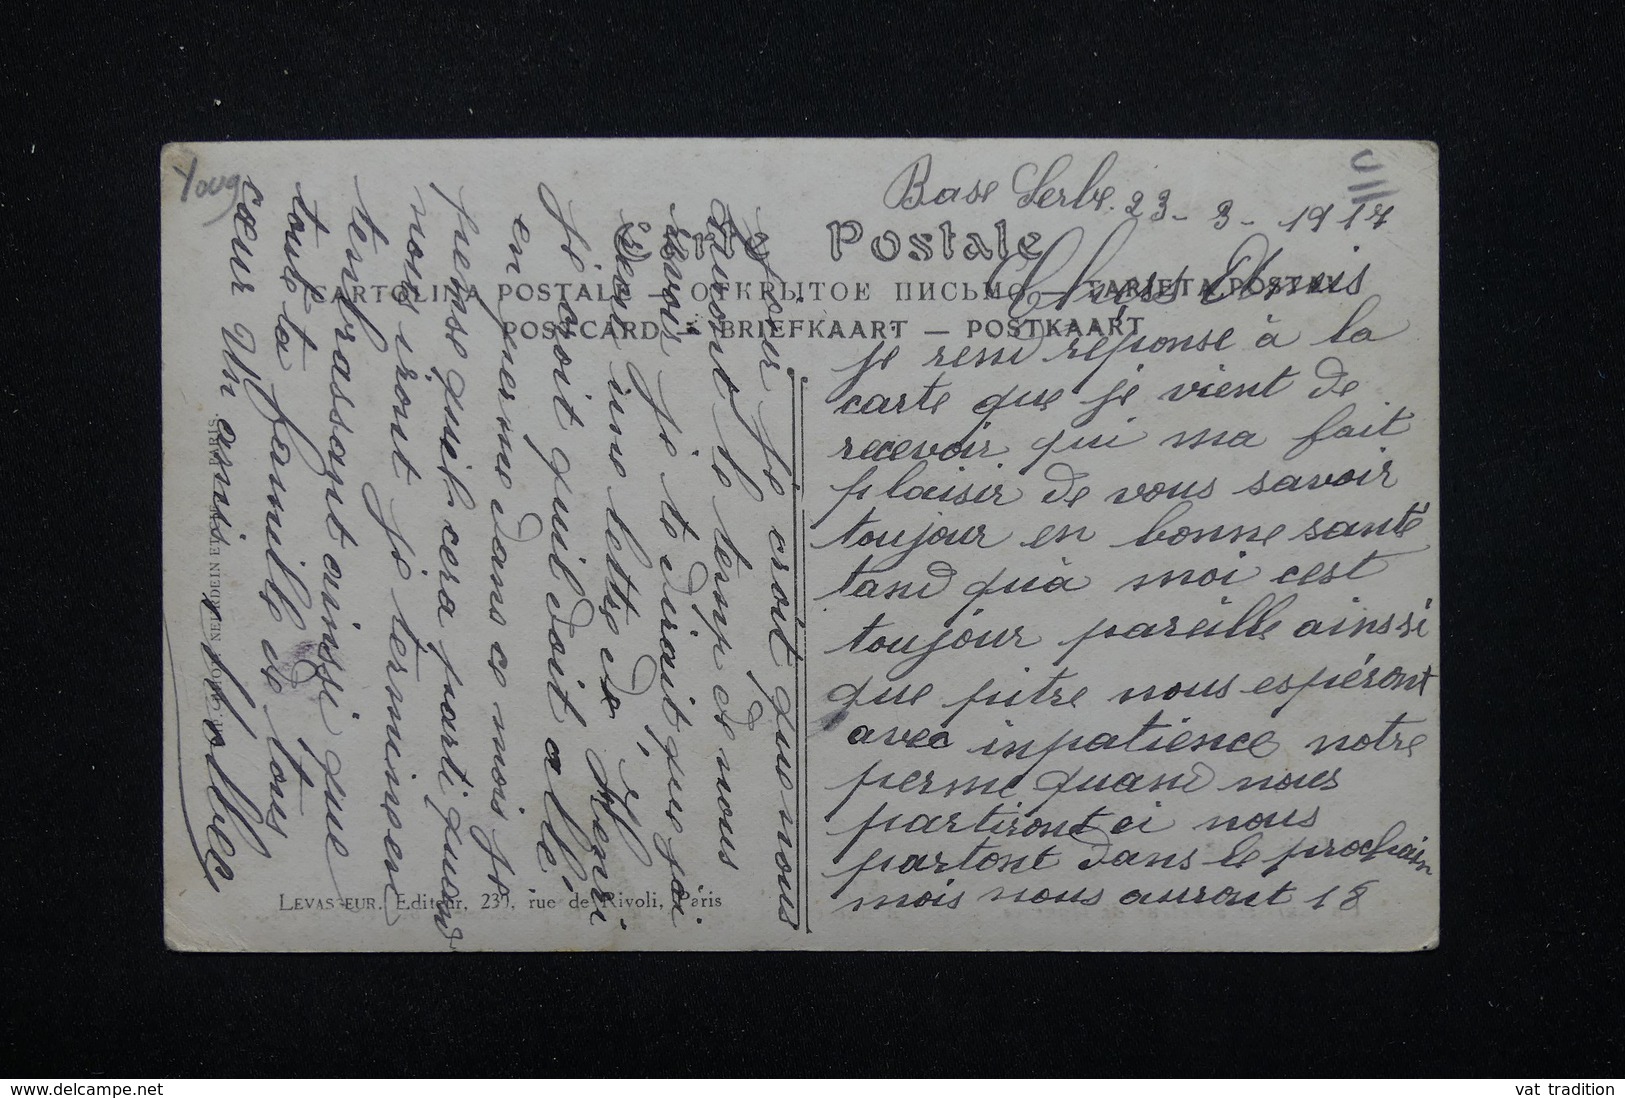 Youg
Base Serbe. 23 - 3 - 1917
Carte Postale
CARTOLINA POSTALE — ОТКРЫТОЕ ПИСЬМО — TARJETA POSTAL
POSTCARD — BRIEFKAART — POSTKAART
Chers Amis
je rend réponse à la
carte que je vient de
recevoir qui ma fait
plaisir de vous savoir
toujour en bonne santé
tand quà moi cest
toujour pareille ainssi
que pitre nous espéront
avec inpatience notre
perme quand nous
partiront ci nous
partont dans le prochain
mois nous auront 18
jour je croit que nous
auront le temp de nous
revoir je te dirait que jai
reçu une lettre de Henri
je croit quil doit allé
en perme dans ce mois je
pense quil cera parti quand
nous iront je termine en
tembrassant ainssi que
toute ta famille de tous
cœur Un amis
LEVASSEUR, Editeur, 230, rue de Rivoli, Paris
NEURDEIN ET Cie PARIS.
www.delcampe.net
vat tradition